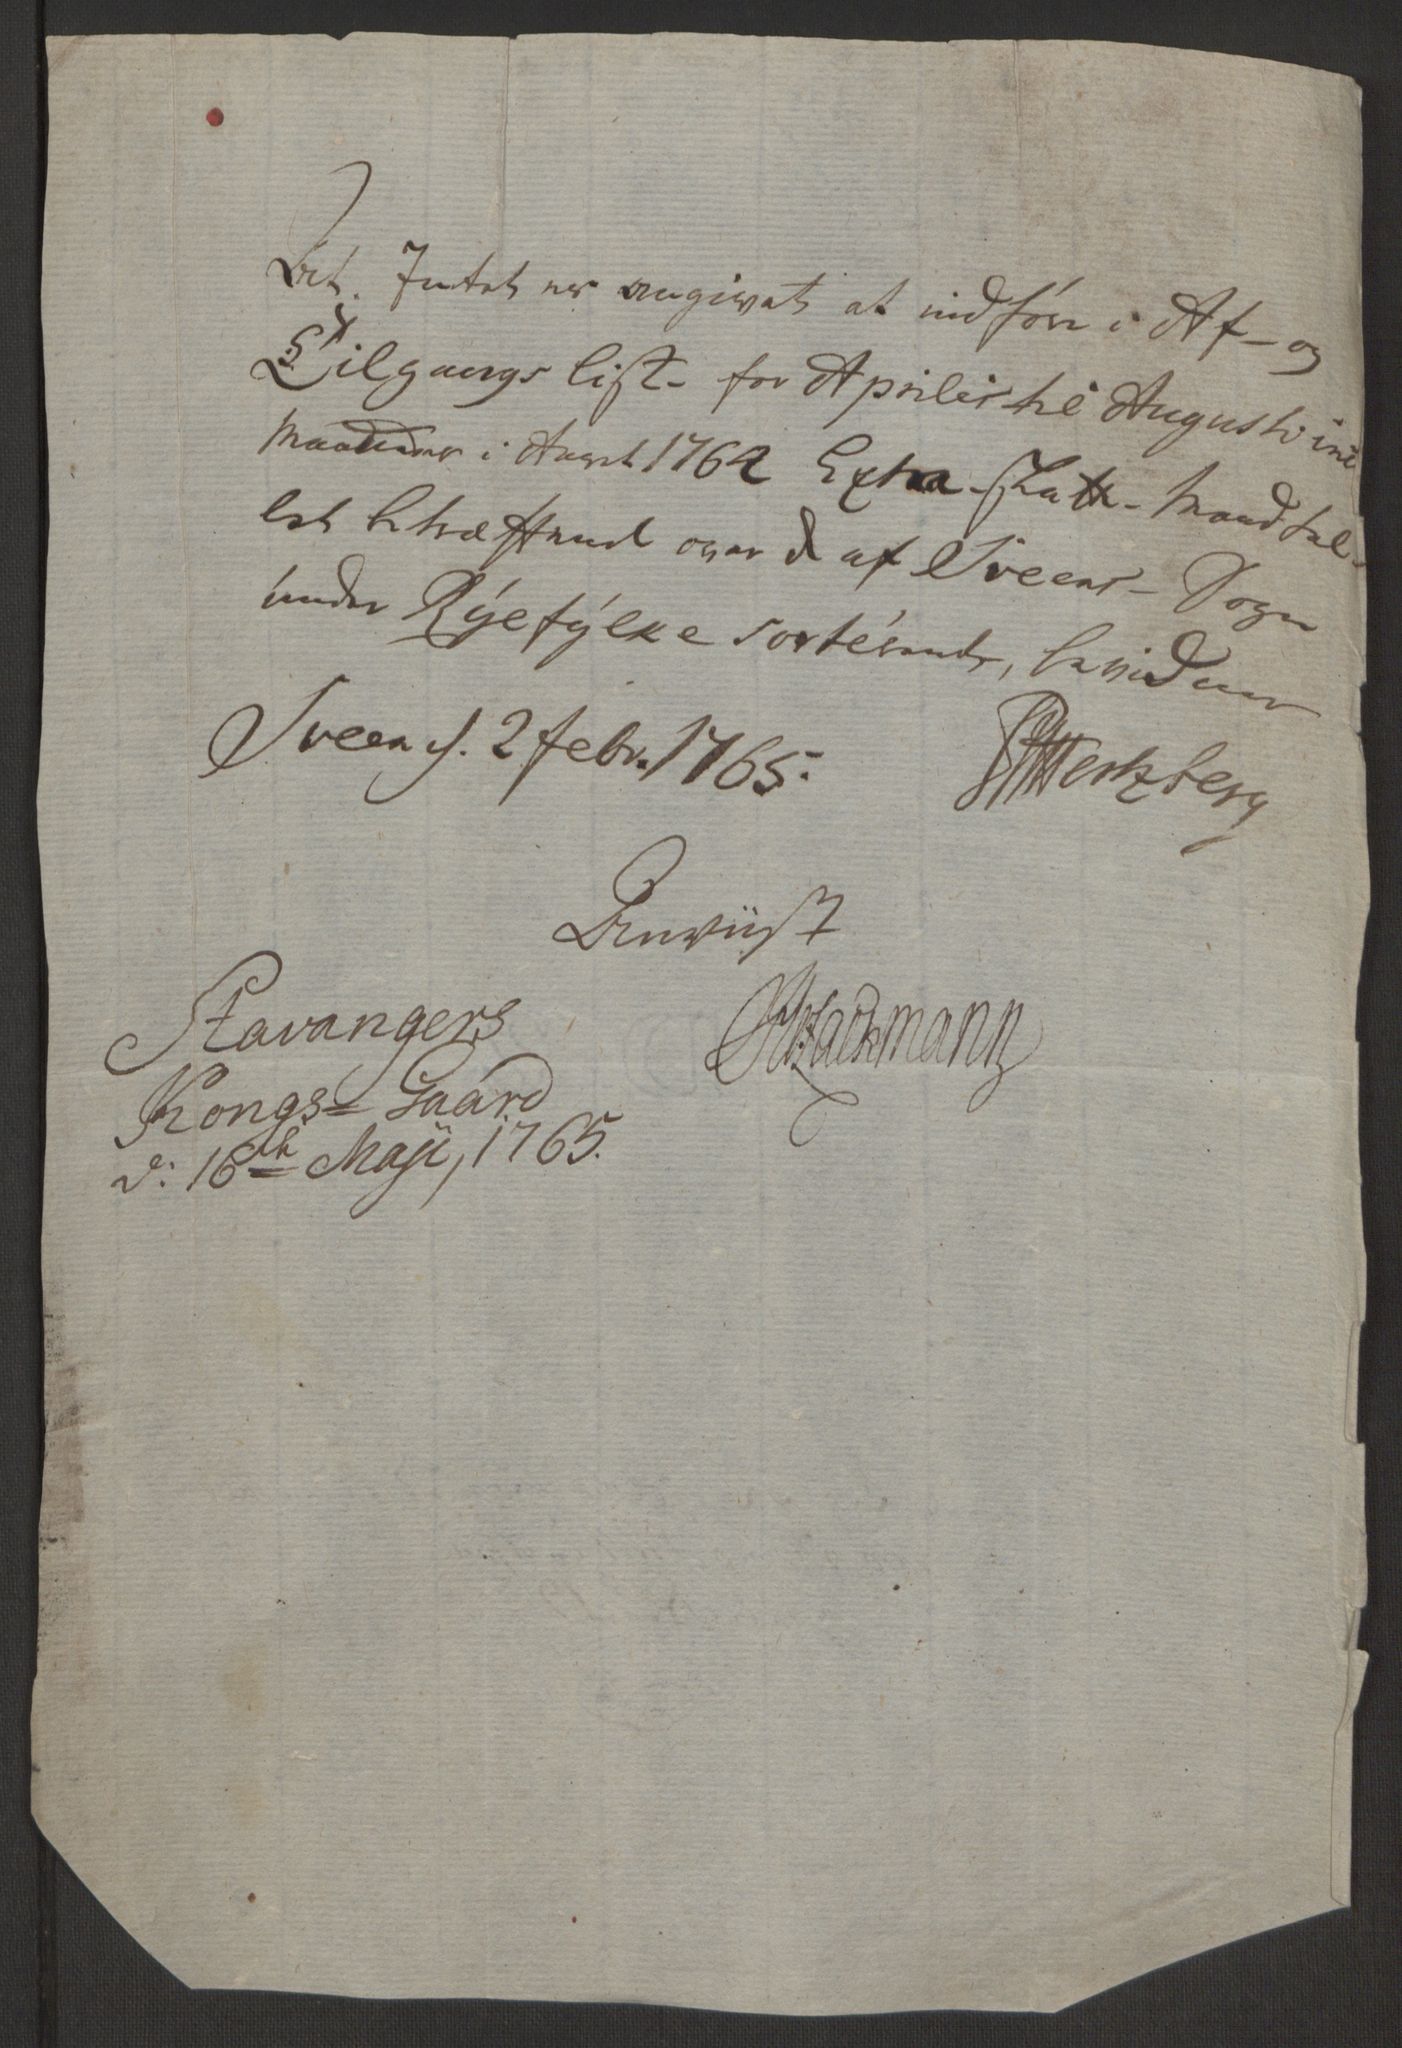 At Intet er angivet at indføre i Af- og
Tilgangs List- for Aprilis til Augusti incl
Maaneder i Aaret 1764 Extra-Skatte-Mandtal-
let betræffende over d af Sveens- Sogn
under Ryefylke sorterende, bevidner
Sveen d. 2 febr. 1765.
Hertzberg
Anviist
Stavangers
Kongs= Gaard
d: 16de Maji, 1765.